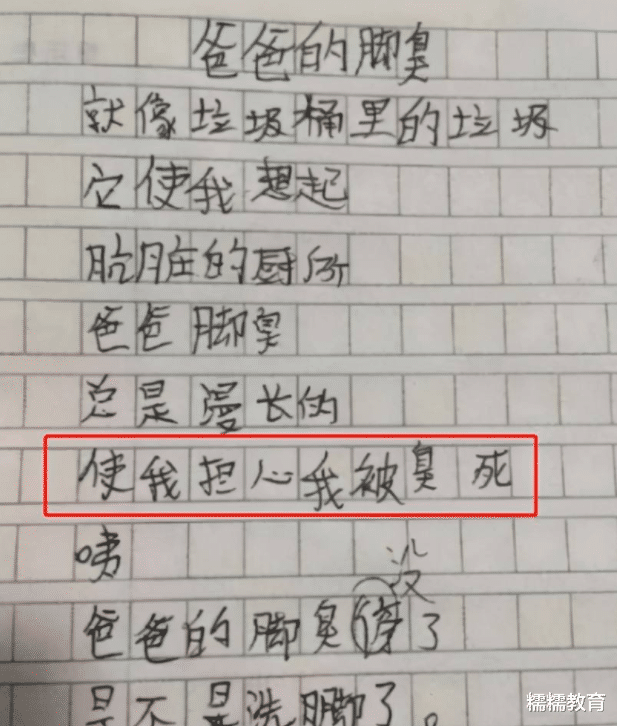 爸爸的脚臭
就像垃圾桶里的垃圾
它使我想起
肮脏的厨所
爸爸脚臭
总是漫长的
使我担心我被臭死
咦
没
爸爸的脚臭停了
是不是洗脚了。
糯糯教育